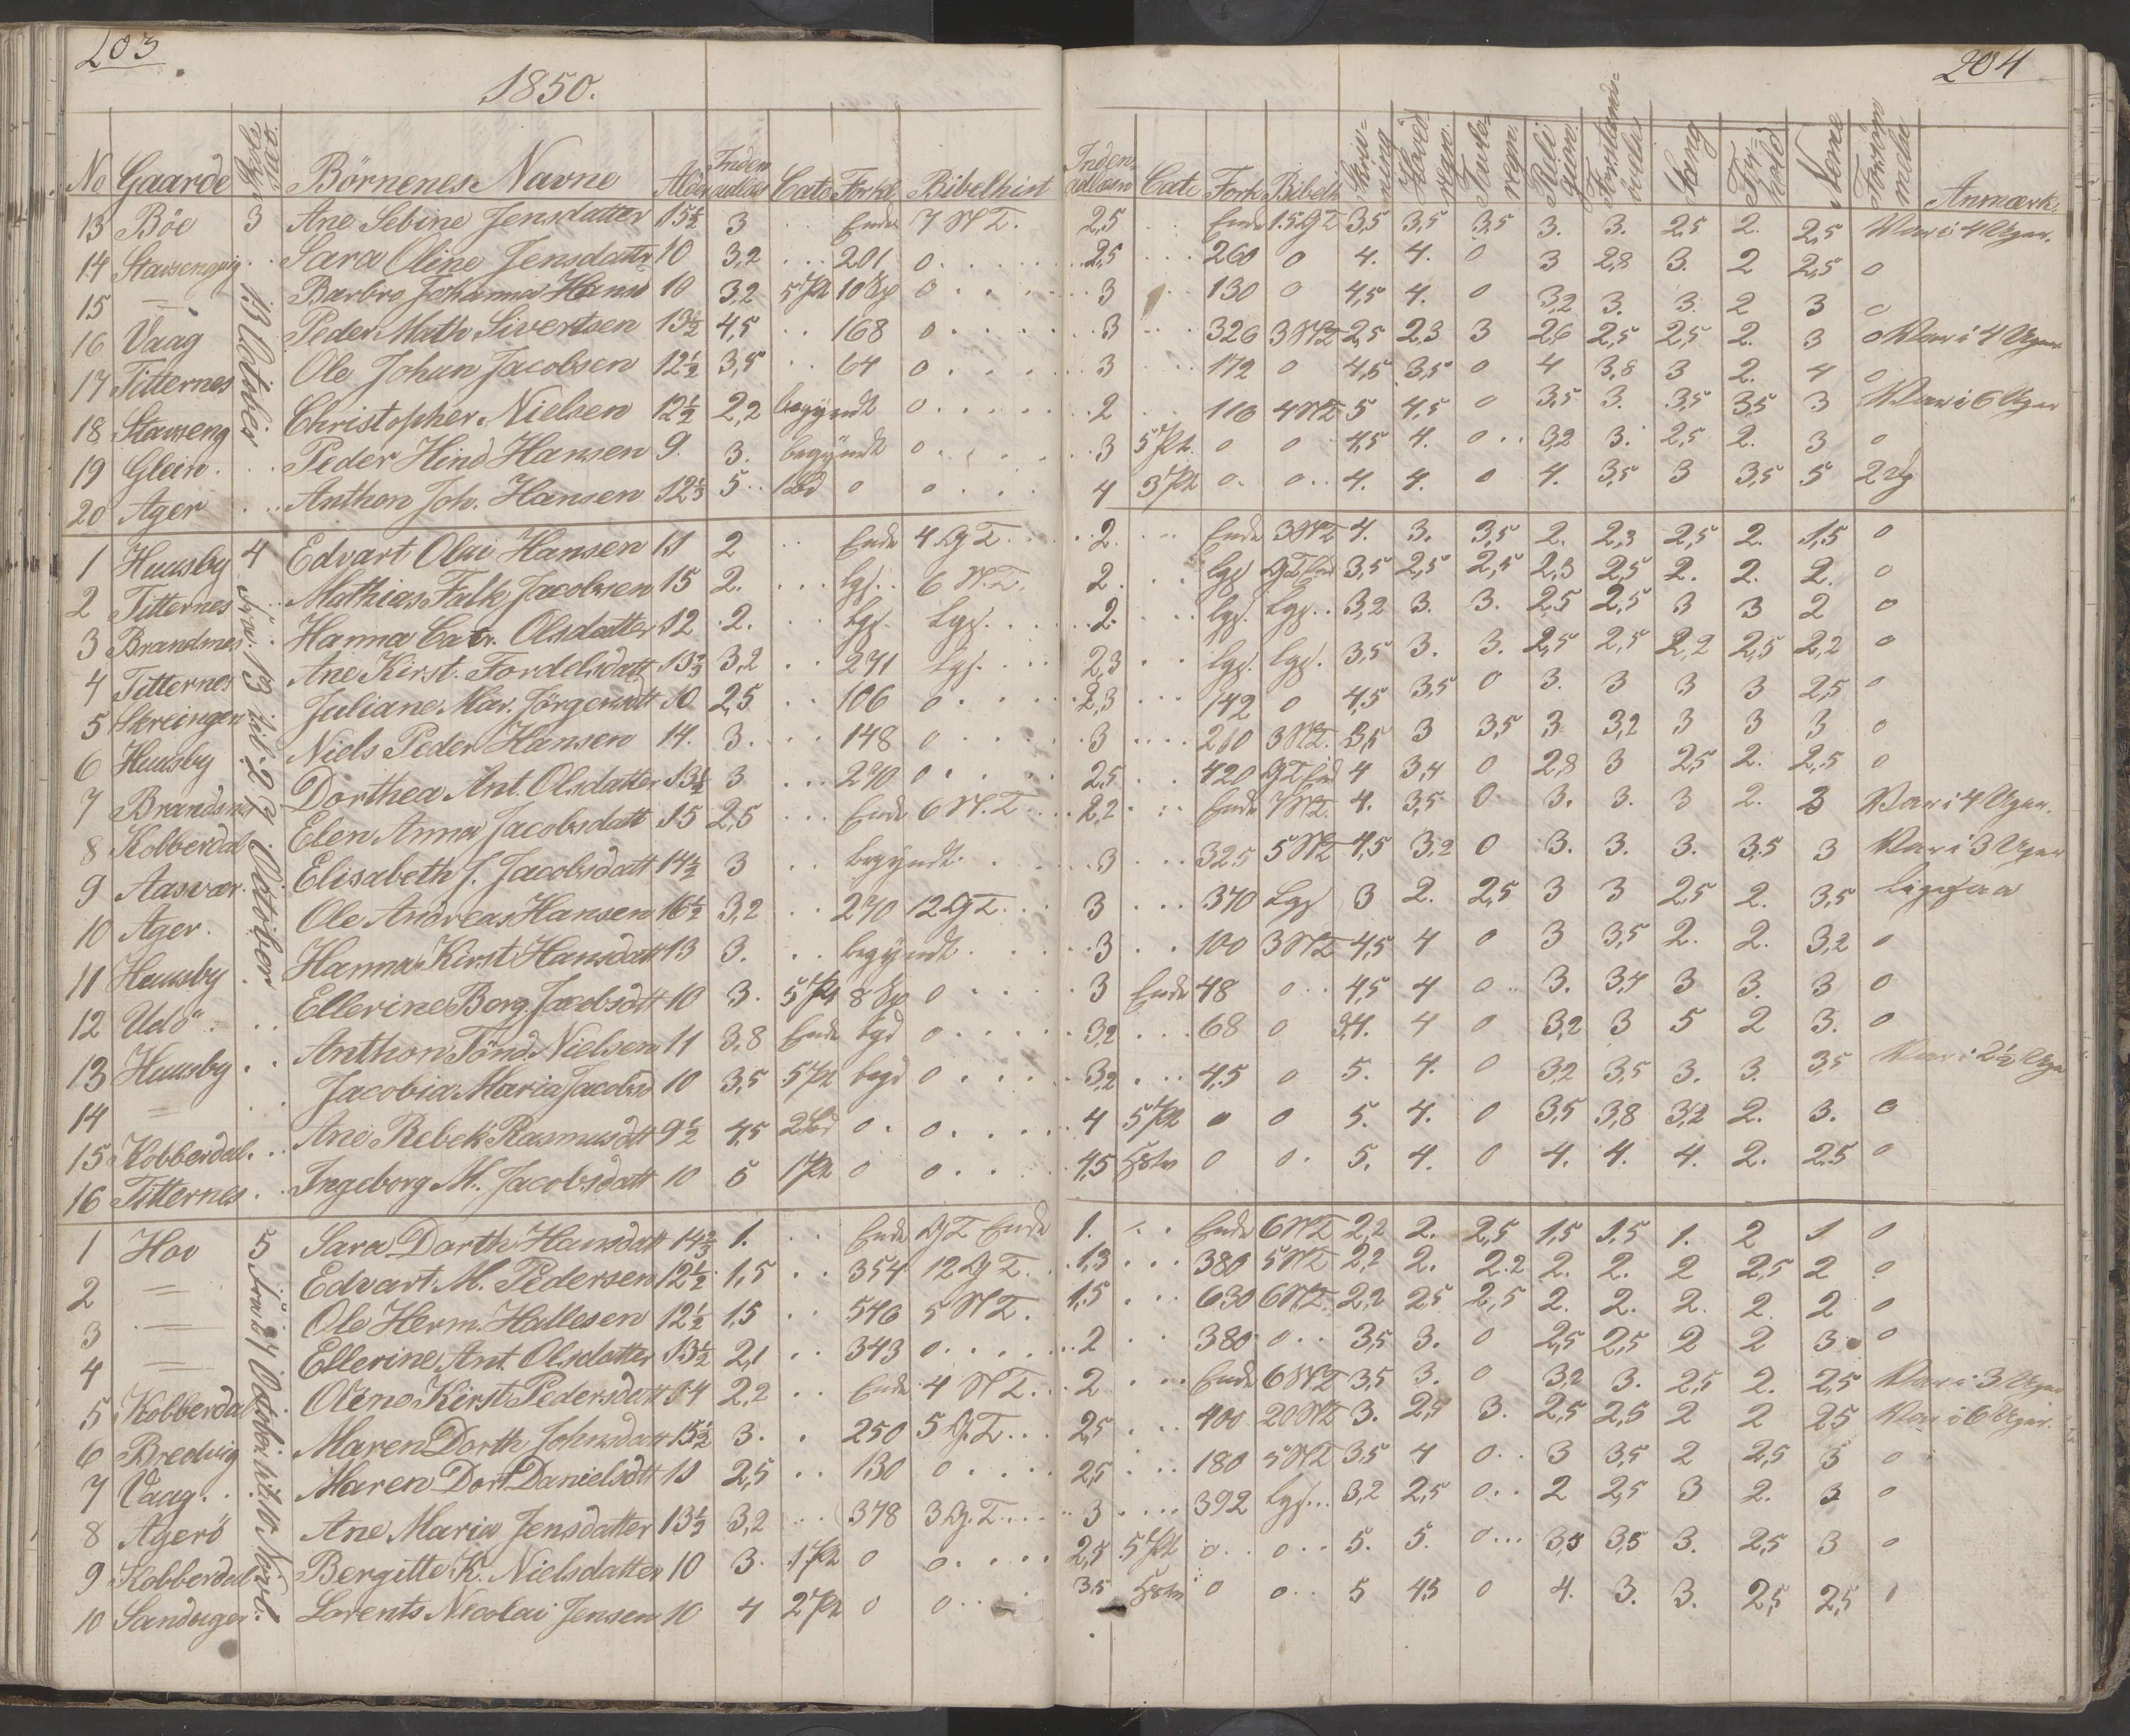 203
204
1850.
No Gaarde Börnenes Navne Alder Inden Cate Forkl Bibelhist Inden Cate Fork Bibelh Skriv= ning Hoved regn. Tavle= regn. Reli gion. Forstands= Sang Flid Anmærk.
13 Böe 3 Ane Sebine Jensdatter 15½ 3 Ende 7 N T. 2,5 Ende 15 G T 3,5 3,5 3,5 3. 3. 2,5 2. 2,5 Var i 4 Uger.
14 Sara Oline Jensdattr 10 3,2 201 0 2,5 260 0 4. 4. 0 3 2,8 3. 2 2,5 0
15 = Barbro Johanna Hansd 10 3,2 5 Pt 0 3 130 0 4,5 4. 0 3,2 3. 3. 2 3 0
16 Vaag Peder Math Sivertsen 13½ 4,5 168 0 3 326 3 NT 2,5 2,3 3 2,6 2,5 2,5 2. 3 0 Var i 4 Uger
17 Titternes Ole Johan Jacobsen 12½ 3,5 64 0 3 172 0 4,5 3,5 0 4 3,8 3 2. 4 0
18 Stavseng Christopher Nielsen 12½ 2,2 begyndt 0 2 110 4 NT 5 4,5 0 3,5 3. 3,5 3,5 3 Var i 6 Uger
19 Glein. Peder Hind Hansen 9. 3. begyndt 0 3 5 Pt. 0 0 4,5 4. 0 3,2 3. 2,5 2. 3 0
20 Ager Anthon Joh. Hansen 5 1 Bd 0 0 4 3 Pt 0. 0 4. 4. 0 4. 3,5 3 3,5 5 2 Ug
13 October
1 Huusby 4 Edvart Olai Hansen 11 2 Ende 4 G T. 2. Ende 3 NT 4. 3. 3,5 2. 2,3 2,5 2. 1,5 0
2 Titternes Mathias Falk Jacobsen 15 2. lgs. 6 N. T. 2. lgs 3,5 2,5 2,5 2,3 2,5 2. 2. 2. 0
3 Brandsnes Hanna Catr. Olsdatter 12 2. lgs. lgs. 2. lgs. lgs. 3,2 3. 3. 2,5 2,5 3 3 2 0
4 Titternes Ane Kirst. Fordelsdatt 3,2 271 lgs. 2,3 lgs. lgs. 3,5 3. 3. 2,5 2,5 2,2 2,5 2,2 0
5 Skreingen Juliane Mar. Jörgensdtt 10 2,5 106 0 2,3 142 0 4,5 3,5 0 3. 3 3 3 2,5 0
6 Huusby Niels Peder Hansen 14. 3. 148 0 3 210 3 NT. 3,5 3 3,5 3 3,2 3 3 3 0
7 Brandsnes Dorthea Ant. Olsdatter 13½ 3 270 0 2,5 420 4 3,4 0 2,8 3 2,5 2. 2,5 0
8 Kobberdal Elen Anna Jacobsdatt 15 2,5 Ende 6 N. T. 2,2 Ende 7 NT. 4. 3,5 0 3. 3. 3 2. 3 Var i 4 Uger.
9 Aasvær. Elisabeth J. Jacobsdatt 14½ 3 begyndt. 3 325 5 NT 4,5 3,2 0 3. 3. 3. 3,5 3 Var i 3 Uger
10 Ager. Ole Andreas Hansen 16½ 3,2 270 12 G T. 3 370 lgs 3 2. 2,5 3 3 2,5 2. 3,5 ligesaa
11 Huusby Hanna Kirst Hansdatt 13 3. begyndt. 3 100 3 NT 4,5 4 0 3 3,5 2. 2. 3,2 0
12 Udö Ellerine Berg. Jacobsdtt 10 3. 5 Pt 0 3 Ende 48 0 4,5 4 0 3. 3,4 3 3. 3 0
13 Huusby Anthon Tönd. Nielsen 11 3,8 Ende bgd 0 3,2 68 0 3,4. 4 0 3,2 3 5 2 3. 0
14 = Jacobia Maria Jacobsd 10 3,5 5 Pt begd 0 3,2 4,5 0 5. 4. 0 3,2 3,5 3. 3. 3,5 Var i 2½ Uge
15 Kobberdal. Ane Rebek. Rasmusdtt 9½ 4,5 2 Bd 0. 0 4 5 Pt 0 0 5. 4. 0 3,5 3,8 3,2 2. 3. 0
16 Titternes Ingeborg M. Jacobsdatt 10 5 1 Pt 0 0 4,5 0 0. 5. 4. 0 4. 4. 4. 2. 2,5 0
Fra 13 til 27 October
1 Hov 5 Sara Dorth Hansdatt 1. Ende G T Ende 1. Ende 6 NT 2,2 2. 2,5 1,5 1,5 1. 2 1 0
2 = Edvart M. Pedersen 12½ 1,5 354 12 G T. 1,3 380 5 NT 2,2 2. 2,2 2. 2. 2 2,5 2 0
3 = Ole Herm. Hallesen 12½ 1,5 546 5 N T. 1,5 630 6 NT. 2,2 2,5 2,5 2. 2. 2. 2. 2 0
4 = Ellerine Ant. Olsdatter 13½ 2,1 343 0 2 380 0 3,5 3. 0 2,5 2,5 2 2 3 0
5 Kobberdal Oline Kirst Pedersdatt 14 2,2 Ende 4 N T. 2 Ende 6 NT 3,5 3. 0 3,2 3. 2,5 2. 2,5 Var i 3 Uger
6 Bredvig Maren Dorth Johnsdatt 15½ 3. 250 5 G. T. 2,5 400 20 NT 3. 2,5 3. 2,5 2,5 2 2 2,5 Var i 6 Uger.
7 Vaag. Maren Dort Danielsdtt 11 2,5 130 0 2,5 180 5 NT 3,5 4 0 3 3,5 2 2,5 3 0
8 Agerö Ane Maria Jensdatter 3,2 378 3 G. T. 3 392 lgs. 3,2 2,5 0 2 2,5 3 2. 3 0
9 Kobberdal Bergitte K. Nielsdatter 10 3. 1 Pt 0 0 2,5 5 Pt 0 0 5. 5. 0 3,5 3,5 3. 2,5 3 0
10 Sandager Lorents Nicolai Jensen 10 4 2 Pt 0 0 3,5 0 0 5 4,5 0 4. 3. 3. 2,5 2,5
Fra 27 October til 10 Novbr.